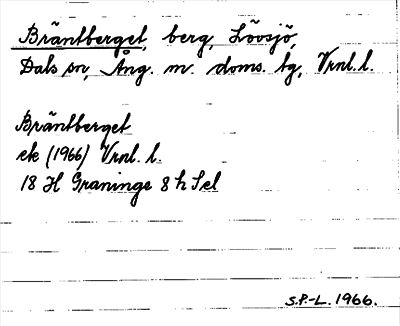 Bräntberget, berg, Lövsjö,
Dals sn, Ång. m. doms. tg, Vrnl. l.
Bräntberget
ek (1966) Vrnl. l.
18 H Graninge 8 h Sel
S.P.-L. 1966.